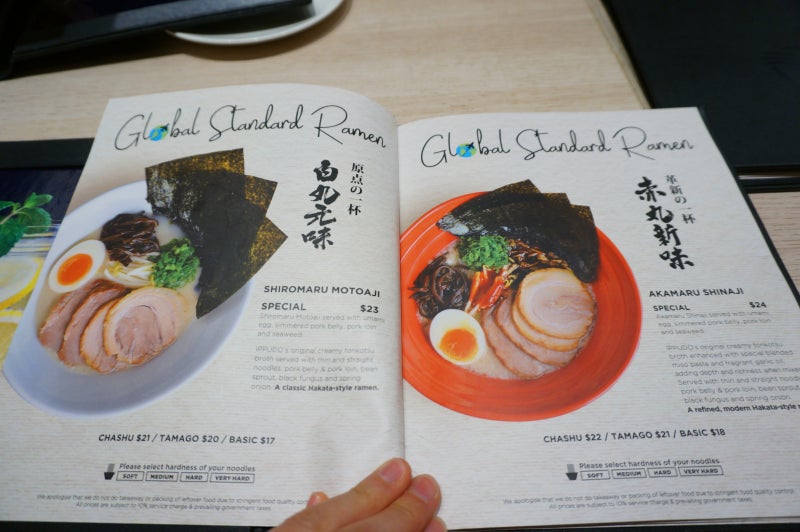 Global Standard Ramen
原点の一杯
白丸元味
SHIROMARU MOTOAJI
SPECIAL $23
Shiromaru Motoaji served with umami
egg, simmered pork belly, pork loin
and seaweed.
IPPUDO's original creamy tonkotsu
broth served with thin and straight
noodles, pork belly & pork loin, bean
sprout, black fungus and spring
onion. A classic Hakata-style ramen.
CHASHU $21 / TAMAGO $20 / BASIC $17
Please select hardness of your noodles
SOFT MEDIUM HARD VERY HARD
We apologise that we do not do takeaway or packing of leftover food due to stringent food quality control.
All prices are subject to 10% service charge & prevailing government taxes.
Global Standard Ramen
革新の一杯
赤丸新味
AKAMARU SHINAJI
SPECIAL $24
Akamaru Shinaji served with umami
egg, simmered pork belly, pork loin
and seaweed.
IPPUDO's original creamy tonkotsu
broth enhanced with special blended
miso paste and fragrant garlic oil,
adding depth and richness when mixed.
Served with thin and straight noodles,
pork belly & pork loin, bean sprout,
black fungus and spring onion.
A refined, modern Hakata-style
CHASHU $22 / TAMAGO $21 / BASIC $18
Please select hardness of your noodles
SOFT MEDIUM HARD VERY HARD
We apologise that we do not do takeaway or packing of leftover food due to stringent food quality control.
All prices are subject to 10% service charge & prevailing government taxes.